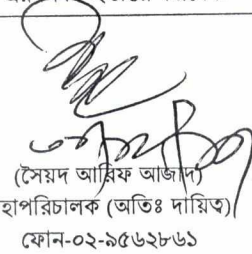 (সৈয়দ আরিফ আজাদ)
হাপরিচালক (অতিঃ দায়িত্ব)
ফোন-০২-৯৫৬২৮৬১